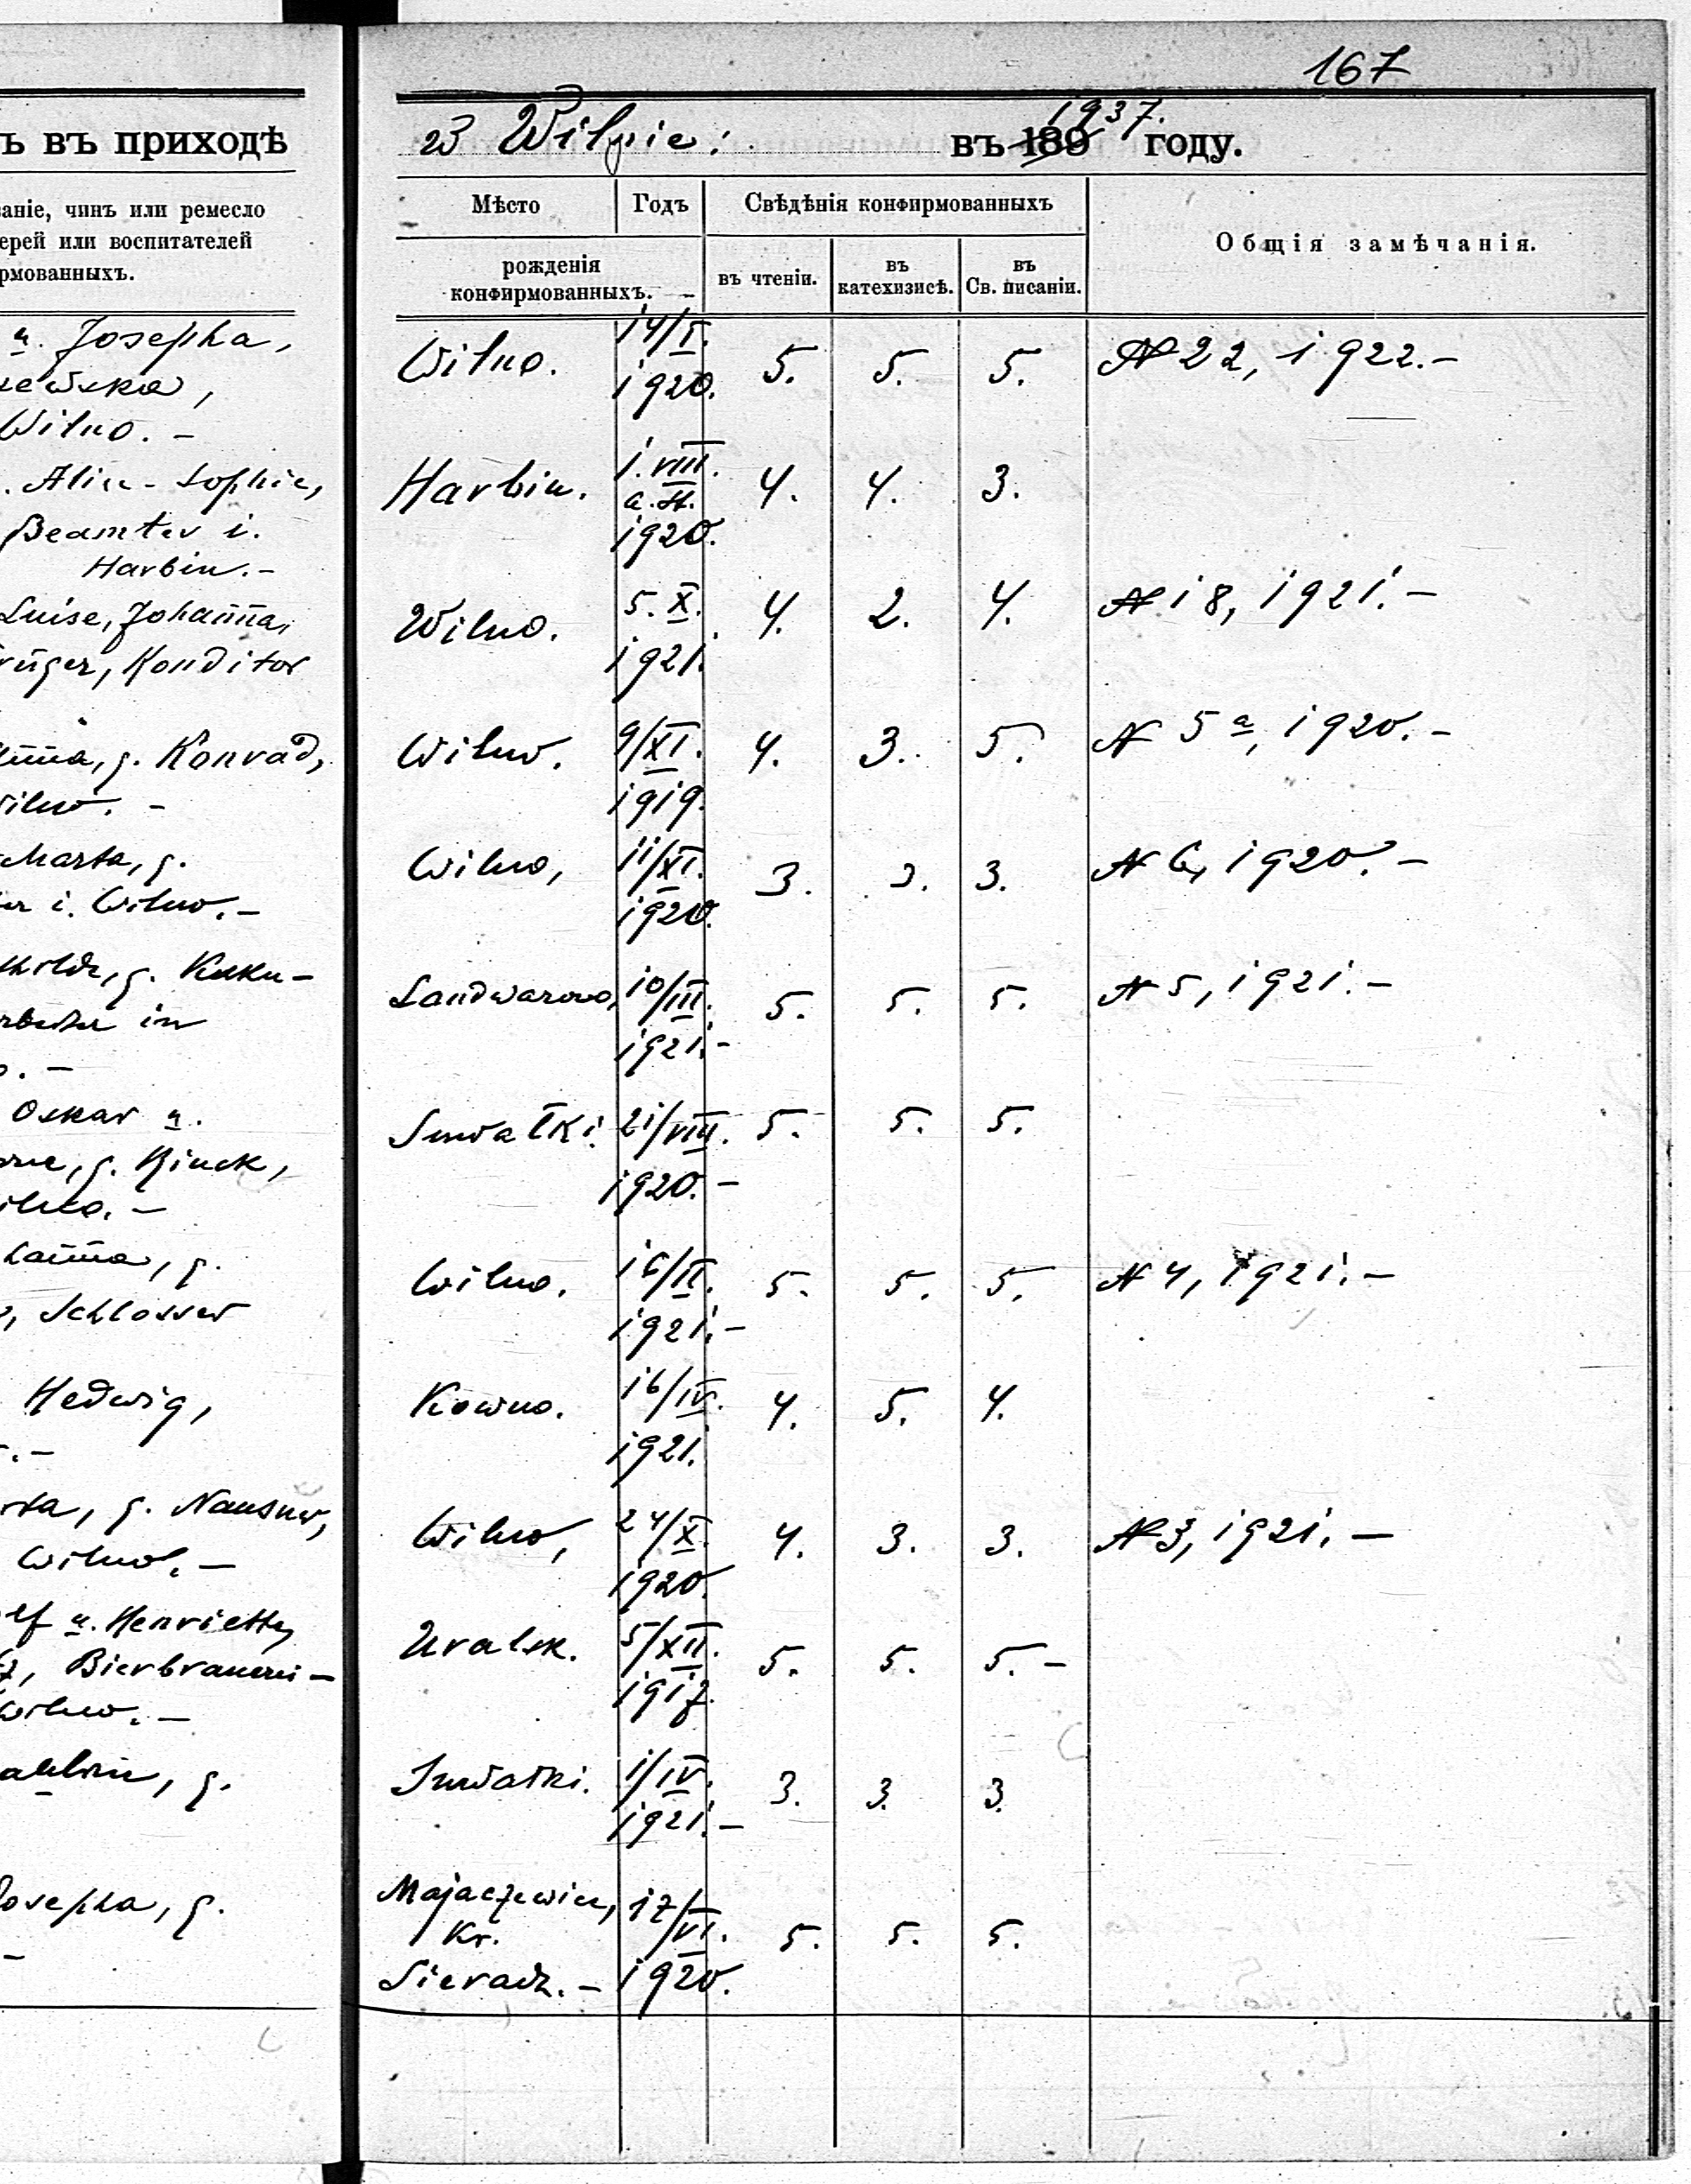 167
ъ въ приходѣ
в Wilnie: въ 189 1937. году.
аніе, чинъ или ремесло
ерей или воспитателей
рмованныхъ.
Мѣсто Годъ Свѣдѣнія конфирмованныхъ Общія замѣчанія.
рожденія конфирмованныхъ. въ чтеніи. въ катехизисѣ. въ Св. писаніи.
u. Josepha,
ewska,
Wilno. -
Wilno. 14/I. 1920. 5. 5. 5. № 22, 1922. -
. Alin - Sophie,
Beamter i.
Harbin. -
Harbin. 1. VIII. a. St. 1920. 4. 4. 3.
Luise, Johanna,
rüger, Konditor
Wilno. 5. X. 1921. 4. 2. 4. № 18, 1921. -
anna, g. Konrad,
Wilno. -
Wilno. 9/XI. 1919. 4. 3. 5. № 5a, 1920. -
Marta, g.
er i. Wilno. -
Wilno, 11/XI. 1920. 3. 3. 3. № 6, 1920. -
thilde, g. Kuku-
rbeiter in
o. -
Landwarowo, 10/III. 1921. - 5. 5. 5. № 5, 1921. -
Oskar u.
g. Rinck,
ilno. -
Suwałki. 21/VIII. 1920. - 5. 5. 5.
hanna, g.
, Schlosser
Wilno. 16/II. 1921. - 5. 5. 5. № 4, 1921. -
Hedwig,
. -
Kowno. 16/IV. 1921. 4. 5. 4.
rta, g. Nausner,
Wilno. -
Wilno, 24/X. 1920. 4. 3. 3. № 3, 1921. -
lf u. Henriette,
Bierbrauerei -
Wilno. -
Uralsk. 5/XII. 1917. 5. 5. 5. -
g.
Suwałki. 1/IV. 1921. - 3. 3. 3.
Josepha, g.
-
Majaczewice, Kr. Sieradz. - 17/VI. 1920. 5. 5. 5.